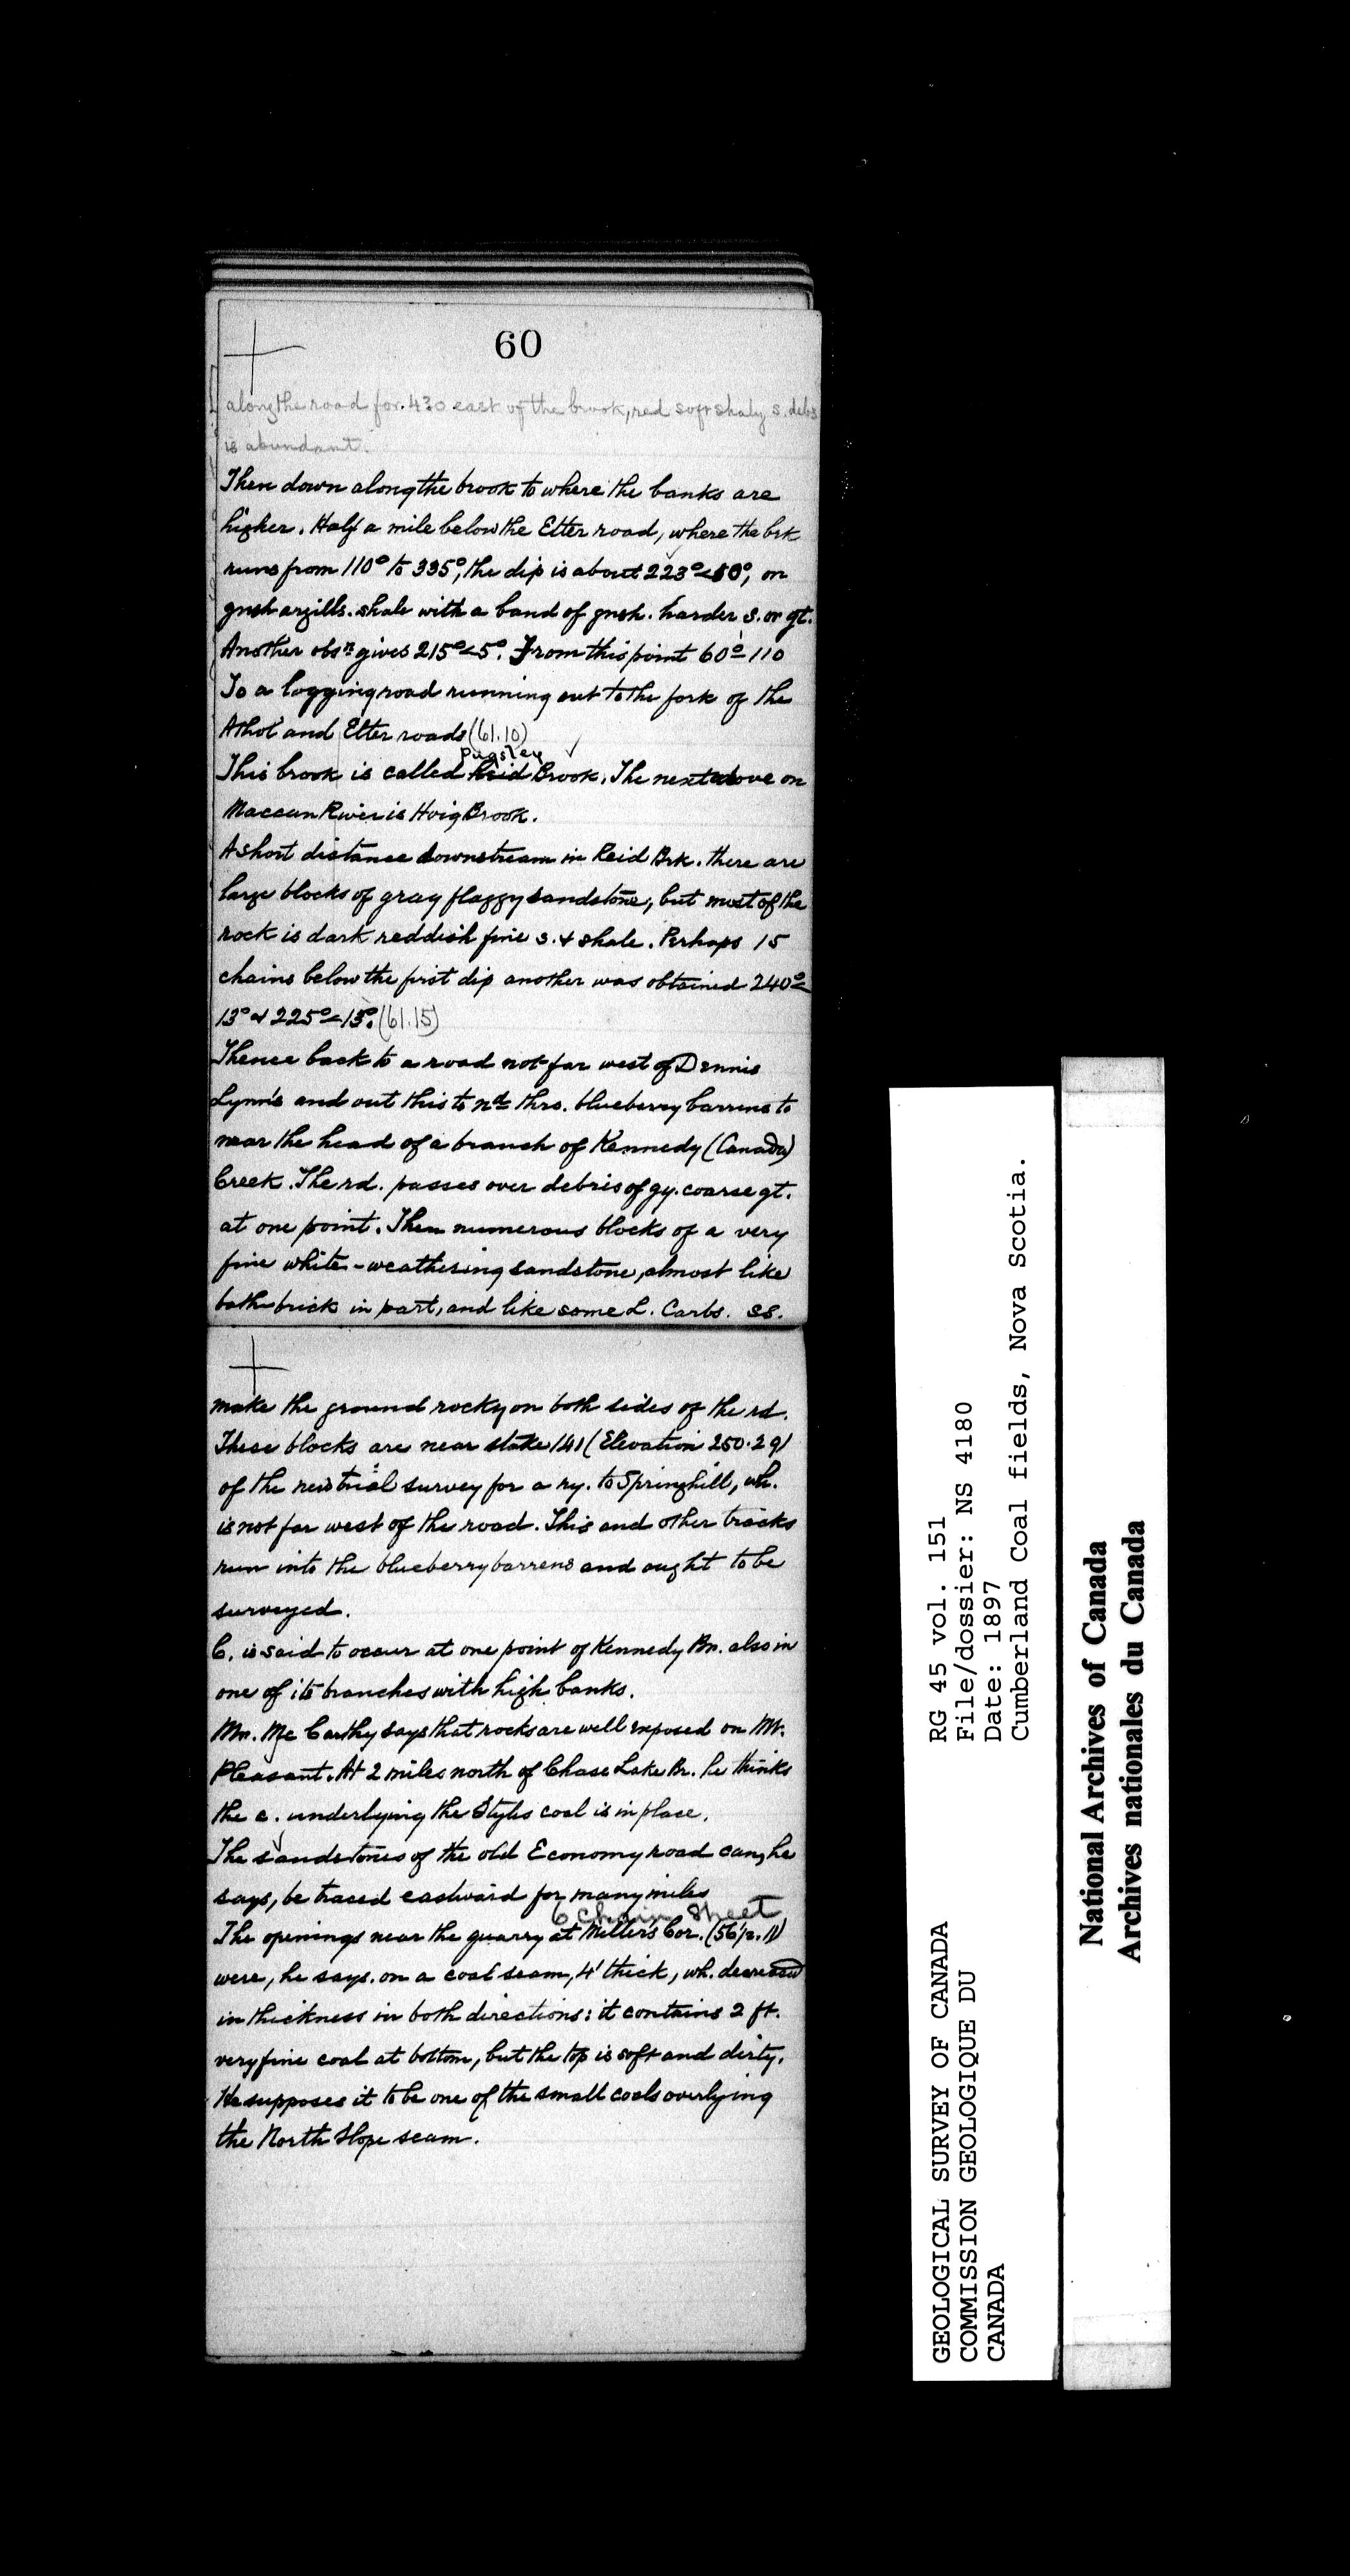 60
along the road for 430 east of the brook, red soft shaly s. debs
is abundant.
Then down along the brook to where the banks are
higher. Half a mile below the Etter road, where the brk
runs from 110° to 335°, the dip is about 223°<10°, on
gnsh argills. shale with a band of gnsh. harder s. or gt.
Another obsn gives 215°<5°. From this point 60° 110
To a logging road running out to the fork of the
Athol and Etter roads (61.10)
Pugsley
This brook is called Reid Brook. The next above on
Maccan River is Hoig Brook.
A short distance downstream in Reid Brk. there are
large blocks of gray flaggy sandstone, but most of the
rock is dark reddish fine s. & shale. Perhaps 15
chains below the first dip another was obtained 240°<
13° & 225°<15°. (61.15)
Thence back to a road not far west of Dennis
Lynn's and out this to nd thro. blueberry barrens to
near the head of a branch of Kennedy (Canada)
Creek. The rd. passes over debris of gy. coarse gt.
at one point. Then numerous blocks of a very
fine white-weathering sandstone, almost like
bath brick in part, and like some L. Carb. ss.
make the ground rocky on both sides of the rd.
These blocks are near stake 141 (Elevation 250.29)
of the new trial survey for a ry. to Springhill, wh.
is not far west of the road. This and other tracks
run into the blueberry barrens and ought to be
surveyed.
C. is said to occur at one point of Kennedy Bn. also in
one of its branches with high banks.
Mr. McCarthy says that rocks are well exposed on Mt.
Pleasant. At 2 miles north of Chase Lake Br. he thinks
the c. underlying the Styles coal is in place.
The sandstones of the old Economy road can, he
says, be traced eastward for many miles
6 chain sheet
The openings near the quarry at Miller's Cor. (56 1/2. 11)
were, he says, on a coal seam, 4' thick, wh. decreased
in thickness in both directions: it contains 2 ft.
very fine coal at bottom, but the top is soft and dirty.
He supposes it to be one of the small coals overlying
the North Slope seam.
GEOLOGICAL SURVEY OF CANADA
COMMISSION GEOLOGIQUE DU
CANADA
RG 45 vol. 151
File/dossier: NS 4180
Date: 1897
Cumberland Coal fields, Nova Scotia.
National Archives of Canada
Archives nationales du Canada